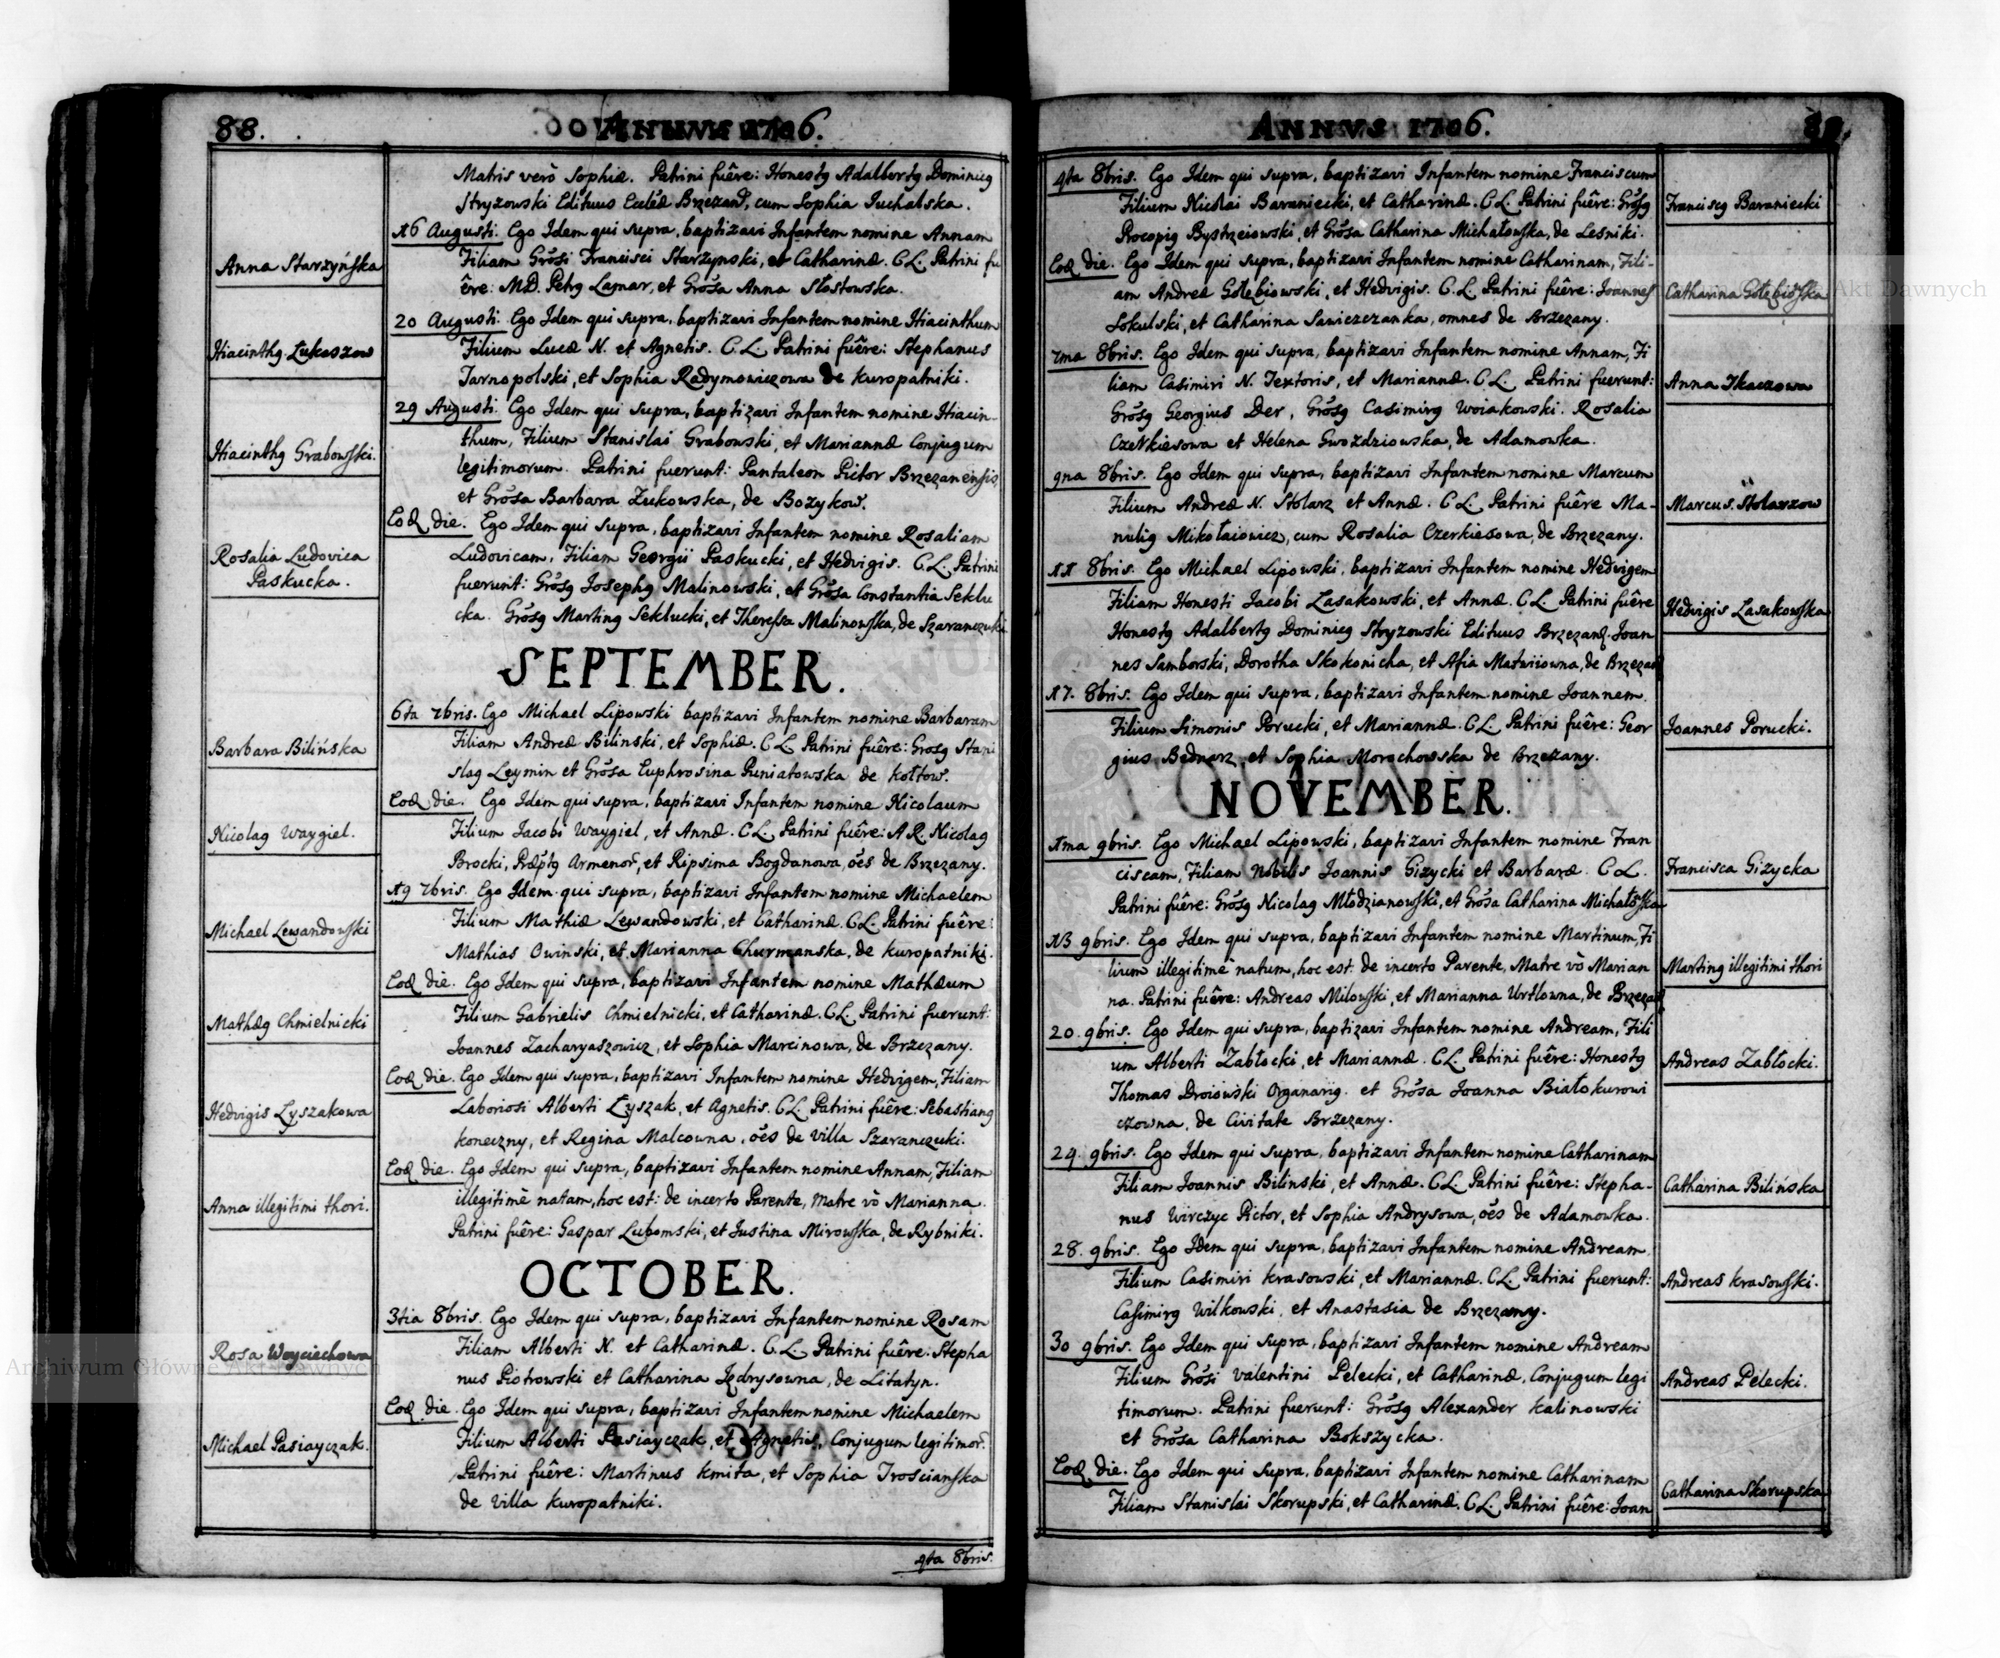 88.
ANNUS 1706.
Matris verò Sophiæ. Patrini fuêre: Honestg Adalbertg Dominicg
Stryzowski Edituus Eccl̃æ Brzezan̄, cum Sophia Juchalska.
16 Augusti. Ego Idem qui supra, baptizavi Infantem nomine Annam
Anna Starzyńska
Filiam Grõsi Francisci Starzynski, et Catharinæ. C.L. Patrini fu
êre: MD. Petrg Lamar, et Grõsa Anna Słostowska.
20 Augusti. Ego Idem qui supra, baptizavi Infantem nomine Hiacinthum
Hiacinthg Łukaszow
Filium Lucæ N. et Agnetis. C.L. Patrini fuêre: Stephanus
Tarnopolski, et Sophia Radymowiczowa de Kuropatniki.
29 Augusti. Ego Idem qui supra, baptizavi Infantem nomine Hiacin-
Hiacinthg Grabowski.
thum, Filium Stanislai Grabowski, et Mariannæ Conjugum
legitimorum. Patrini fuerunt: Pantaleon Pictor Brzezanensis,
et Grõsa Barbara Zukowska, de Bozykow.
Eod̃ die. Ego Idem qui supra, baptizavi Infantem nomine Rosaliam
Rosalia Ludovica
Paskucka.
Ludovicam, Filiam Georgii Paskucki, et Hedvigis. C.L. Patrini
fuerunt: Grõsg Josephg Malinowski, et Grõsa Constantia Seklu
cka. Grõsg Marting Seklucki, et Theressa Malinowska, de Szaranczuki
SEPTEMBER.
6ta 7bris. Ego Michael Lipowski baptizavi Infantem nomine Barbaram
Barbara Bilińska
Filiam Andreæ Bilinski, et Sophiæ. C.L. Patrini fuêre: Grosg Stani
slag Leymin et Grõsa Euphrosina Puniatowska de Kołtow.
Eod̃ die. Ego Idem qui supra, baptizavi Infantem nomine Nicolaum
Nicolag Waygiel.
Filium Jacobi Waygiel, et Annæ. C.L. Patrini fuêre: A.R. Nicolag
Brocki, Præp̃tg Armenor̃, et Ripsima Bogdanowa, oẽs de Brzezany.
19 7bris. Ego Idem qui supra, baptizavi Infantem nomine Michaelem
Michael Lewandowski
Filium Mathiæ Lewandowski, et Catharinæ. C.L. Patrini fuêre:
Mathias Owinski, et Marianna Churmanska, de Kuropatniki.
Eod̃ die. Ego Idem qui supra, baptizavi Infantem nomine Mathæum
Mathæg Chmielnicki
Filium Gabrielis Chmielnicki, et Catharinæ. C.L. Patrini fuerunt:
Joannes Zacharyaszowicz, et Sophia Marcinowa, de Brzezany.
Eod̃ die. Ego Idem qui supra, baptizavi Infantem nomine Hedvigem, Filiam
Hedvigis Łyszakowa
Laboriosi Alberti Łyszak, et Agnetis. C.L. Patrini fuêre: Sebastiang
Koneczny, et Regina Malcowna, oẽs de Villa Szaranczuki.
Eod̃ die. Ego Idem qui supra, baptizavi Infantem nomine Annam, Filiam
Anna illegitimi thori.
illegitimè natam, hoc est: de incerto Parente, Matre võ Marianna.
Patrini fuêre: Gaspar Lubomski, et Justina Mirowska, de Rybniki.
OCTOBER.
3tia 8bris. Ego Idem qui supra, baptizavi Infantem nomine Rosam
Rosa Woyciechowa
Filiam Alberti N. et Catharinæ. C.L. Patrini fuêre: Stepha
nus Piotrowski et Catharina Jędrysowna, de Litatyn.
Eod̃ die. Ego Idem qui supra, baptizavi Infantem nomine Michaelem
Michael Pasiayczak.
Filium Alberti Pasiayczak, et Agnetis, Conjugum legitimor̃.
Patrini fuêre: Martinus Kmita, et Sophia Trościanska
de Villa Kuropatniki.
4ta 8bris.
ANNVS 1706.
89.
4ta 8bris. Ego Idem qui supra, baptizavi Infantem nomine Franciscum
Filium Nicolai Baraniecki, et Catharinæ. C.L. Patrini fuêre: Grõsg
Franciscg Baraniecki
Procopig Bystrzeiowski, et Grõsa Catharina Michałowska, de Lesniki.
Eod̃ die. Ego Idem qui supra, baptizavi Infantem nomine Catharinam, Fili-
am Andreæ Gołębiowski, et Hedvigis. C.L. Patrini fuêre: Joannes
Catharina Gołębiowska
Sokulski, et Catharina Sawiczczanka, omnes de Brzezany.
7ma 8bris. Ego Idem qui supra, baptizavi Infantem nomine Annam, Fi
liam Casimiri N. Textoris, et Mariannæ. C.L. Patrini fuerunt:
Anna Tkaczowa
Grõsg Georgius Der, Grõsg Casimirg Woiakowski. Rosalia
Czerkiesowa et Helena Gwozdziowska, de Adamowka.
9na 8bris. Ego Idem qui supra, baptizavi Infantem nomine Marcum
Filium Andreæ N. Stolarz et Annæ. C.L. Patrini fuêre Ma-
Marcus Stolarzow
nulig Mikołaiowicz, cum Rosalia Czerkiesowa, de Brzezany.
11 8bris. Ego Michael Lipowski, baptizavi Infantem nomine Hedvigem
Filiam Honesti Jacobi Lasakowski, et Annæ. C.L. Patrini fuêre
Hedvigis Lasakowska
Honestg Adalbertg Dominicg Stryzowski Edituus Brzezan̄. Joan
nes Samborski, Dorotha Skokonicha, et Afia Matwiiowna, de Brzezan̄
17. 8bris. Ego Idem qui supra, baptizavi Infantem nomine Joannem.
Filium Simonis Porucki, et Mariannæ. C.L. Patrini fuêre: Geor
Joannes Porucki.
gius Bednarz, et Sophia Morochowska de Brzezany.
NOVEMBER.
1ma 9bris. Ego Michael Lipowski, baptizavi Infantem nomine Fran
ciscam, Filiam Nobilis Joannis Gizycki et Barbaræ. C.L.
Francisca Gizycka
Patrini fuêre: Grõsg Nicolag Młodzianowski, et Grõsa Catharina Michałowska
13 9bris. Ego Idem qui supra, baptizavi Infantem nomine Martinum, Fi
lium illegitimè natum, hoc est: de incerto Parente, Matre võ Marian
Marting illegitimi thori
na. Patrini fuêre: Andreas Milowski, et Marianna Urtlowna, de Brzezan̄
20. 9bris. Ego Idem qui supra, baptizavi Infantem nomine Andream, Fili
um Alberti Zabłocki, et Mariannæ. C.L. Patrini fuêre: Honestg
Andreas Zabłocki.
Thomas Droiowski Organarig. et Grõsa Joanna Białokurowi
czowna, de Civitate Brzezany.
24. 9bris. Ego Idem qui supra, baptizavi Infantem nomine Catharinam
Filiam Joannis Bilinski, et Annæ. C.L. Patrini fuêre: Stepha-
Catharina Bilińska
nus Wirczyc Pictor, et Sophia Andrysowa, oẽs de Adamowka.
28. 9bris. Ego Idem qui supra, baptizavi Infantem nomine Andream.
Filium Casimiri Krasowski, et Mariannæ. C.L. Patrini fuerunt:
Andreas Krasowski.
Casimirg Wilkowski, et Anastasia de Brzezany.
30 9bris. Ego Idem qui supra, baptizavi Infantem nomine Andream
Filium Grõsi Valentini Pelecki, et Catharinæ, Conjugum legi
Andreas Pelecki.
timorum. Patrini fuerunt: Grõsg Alexander Kalinowski
et Grõsa Catharina Bokszycka.
Eod̃ die. Ego Idem qui supra, baptizavi Infantem nomine Catharinam
Filiam Stanislai Skorupski, et Catharinæ. C.L. Patrini fuêre: Joan
Catharina Skorupska
Archiwum Główne Akt Dawnych
Akt Dawnych